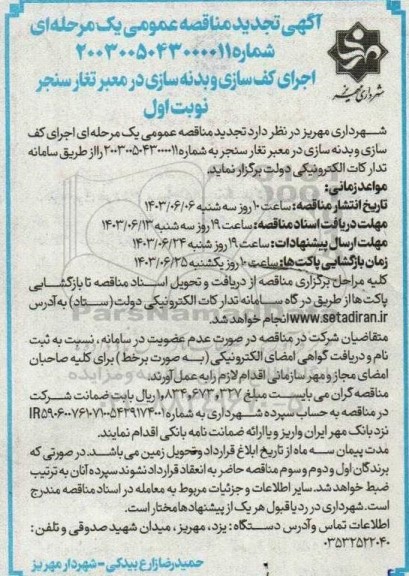 آگهی تجدید مناقصه عمومی یک مرحله‌ای
شماره ۲۰۰۳۰۰۵۰۴۳۰۰۰۰۱۱
اجرای کف سازی و بدنه سازی در معبر تغار سنجر
نوبت اول
شهرداری مهریز
شهرداری مهریز در نظر دارد تجدید مناقصه عمومی یک مرحله‌ای اجرای کف
سازی و بدنه سازی در معبر تغار سنجر به شماره ۲۰۰۳۰۰۵۰۴۳۰۰۰۰۱۱ را از طریق سامانه
تدارکات الکترونیکی دولت برگزار نماید.
مواعد زمانی:
تاریخ انتشار مناقصه: ساعت ۱۰ روز سه شنبه ۱۴۰۳/۰۶/۰۶
مهلت دریافت اسناد مناقصه: ساعت ۱۹ روز سه شنبه ۱۴۰۳/۰۶/۱۳
مهلت ارسال پیشنهادات: ساعت ۱۹ روز شنبه ۱۴۰۳/۰۶/۲۴
زمان بازگشایی پاکت‌ها: ساعت ۱۰ روز یکشنبه ۱۴۰۳/۰۶/۲۵
کلیه مراحل برگزاری مناقصه از دریافت و تحویل اسناد مناقصه تا بازگشایی
پاکت‌ها از طریق درگاه سامانه تدارکات الکترونیکی دولت (ستاد) به آدرس
www.setadiran.ir انجام خواهد شد.
متقاضیان شرکت در مناقصه در صورت عدم عضویت در سامانه، نسبت به ثبت
نام و دریافت گواهی امضای الکترونیکی (به صورت برخط) برای کلیه صاحبان
امضای مجاز و مهر سازمانی اقدام لازم را به عمل آورند.
مناقصه گران می بایست مبلغ ۱۰،۸۳۴،۶۷۳،۳۲۷ ریال بابت ضمانت شرکت
در مناقصه به حساب سپرده شهرداری به شماره IR۵۹۰۶۰۰۷۶۱۰۷۱۰۰۵۴۳۹۱۷۴۰۰۱
نزد بانک مهر ایران واریز و یا ارائه ضمانت نامه بانکی اقدام نمایند.
مدت پیمان سه ماه از تاریخ ابلاغ قرارداد و تحویل زمین می باشد. در صورتی که
برندگان اول و دوم و سوم مناقصه حاضر به انعقاد قرارداد نشوند سپرده آنان به ترتیب
ضبط خواهد شد. سایر اطلاعات و جزئیات مربوط به معامله در اسناد مناقصه مندرج
است. شهرداری در رد یا قبول هر یک از پیشنهادها مختار است.
اطلاعات تماس و آدرس دستگاه: یزد، مهریز، میدان شهید صدوقی و تلفن:
۰۳۵۳۲۵۲۲۰۴۰
حمیدرضا زارع بیدکی - شهردار مهریز